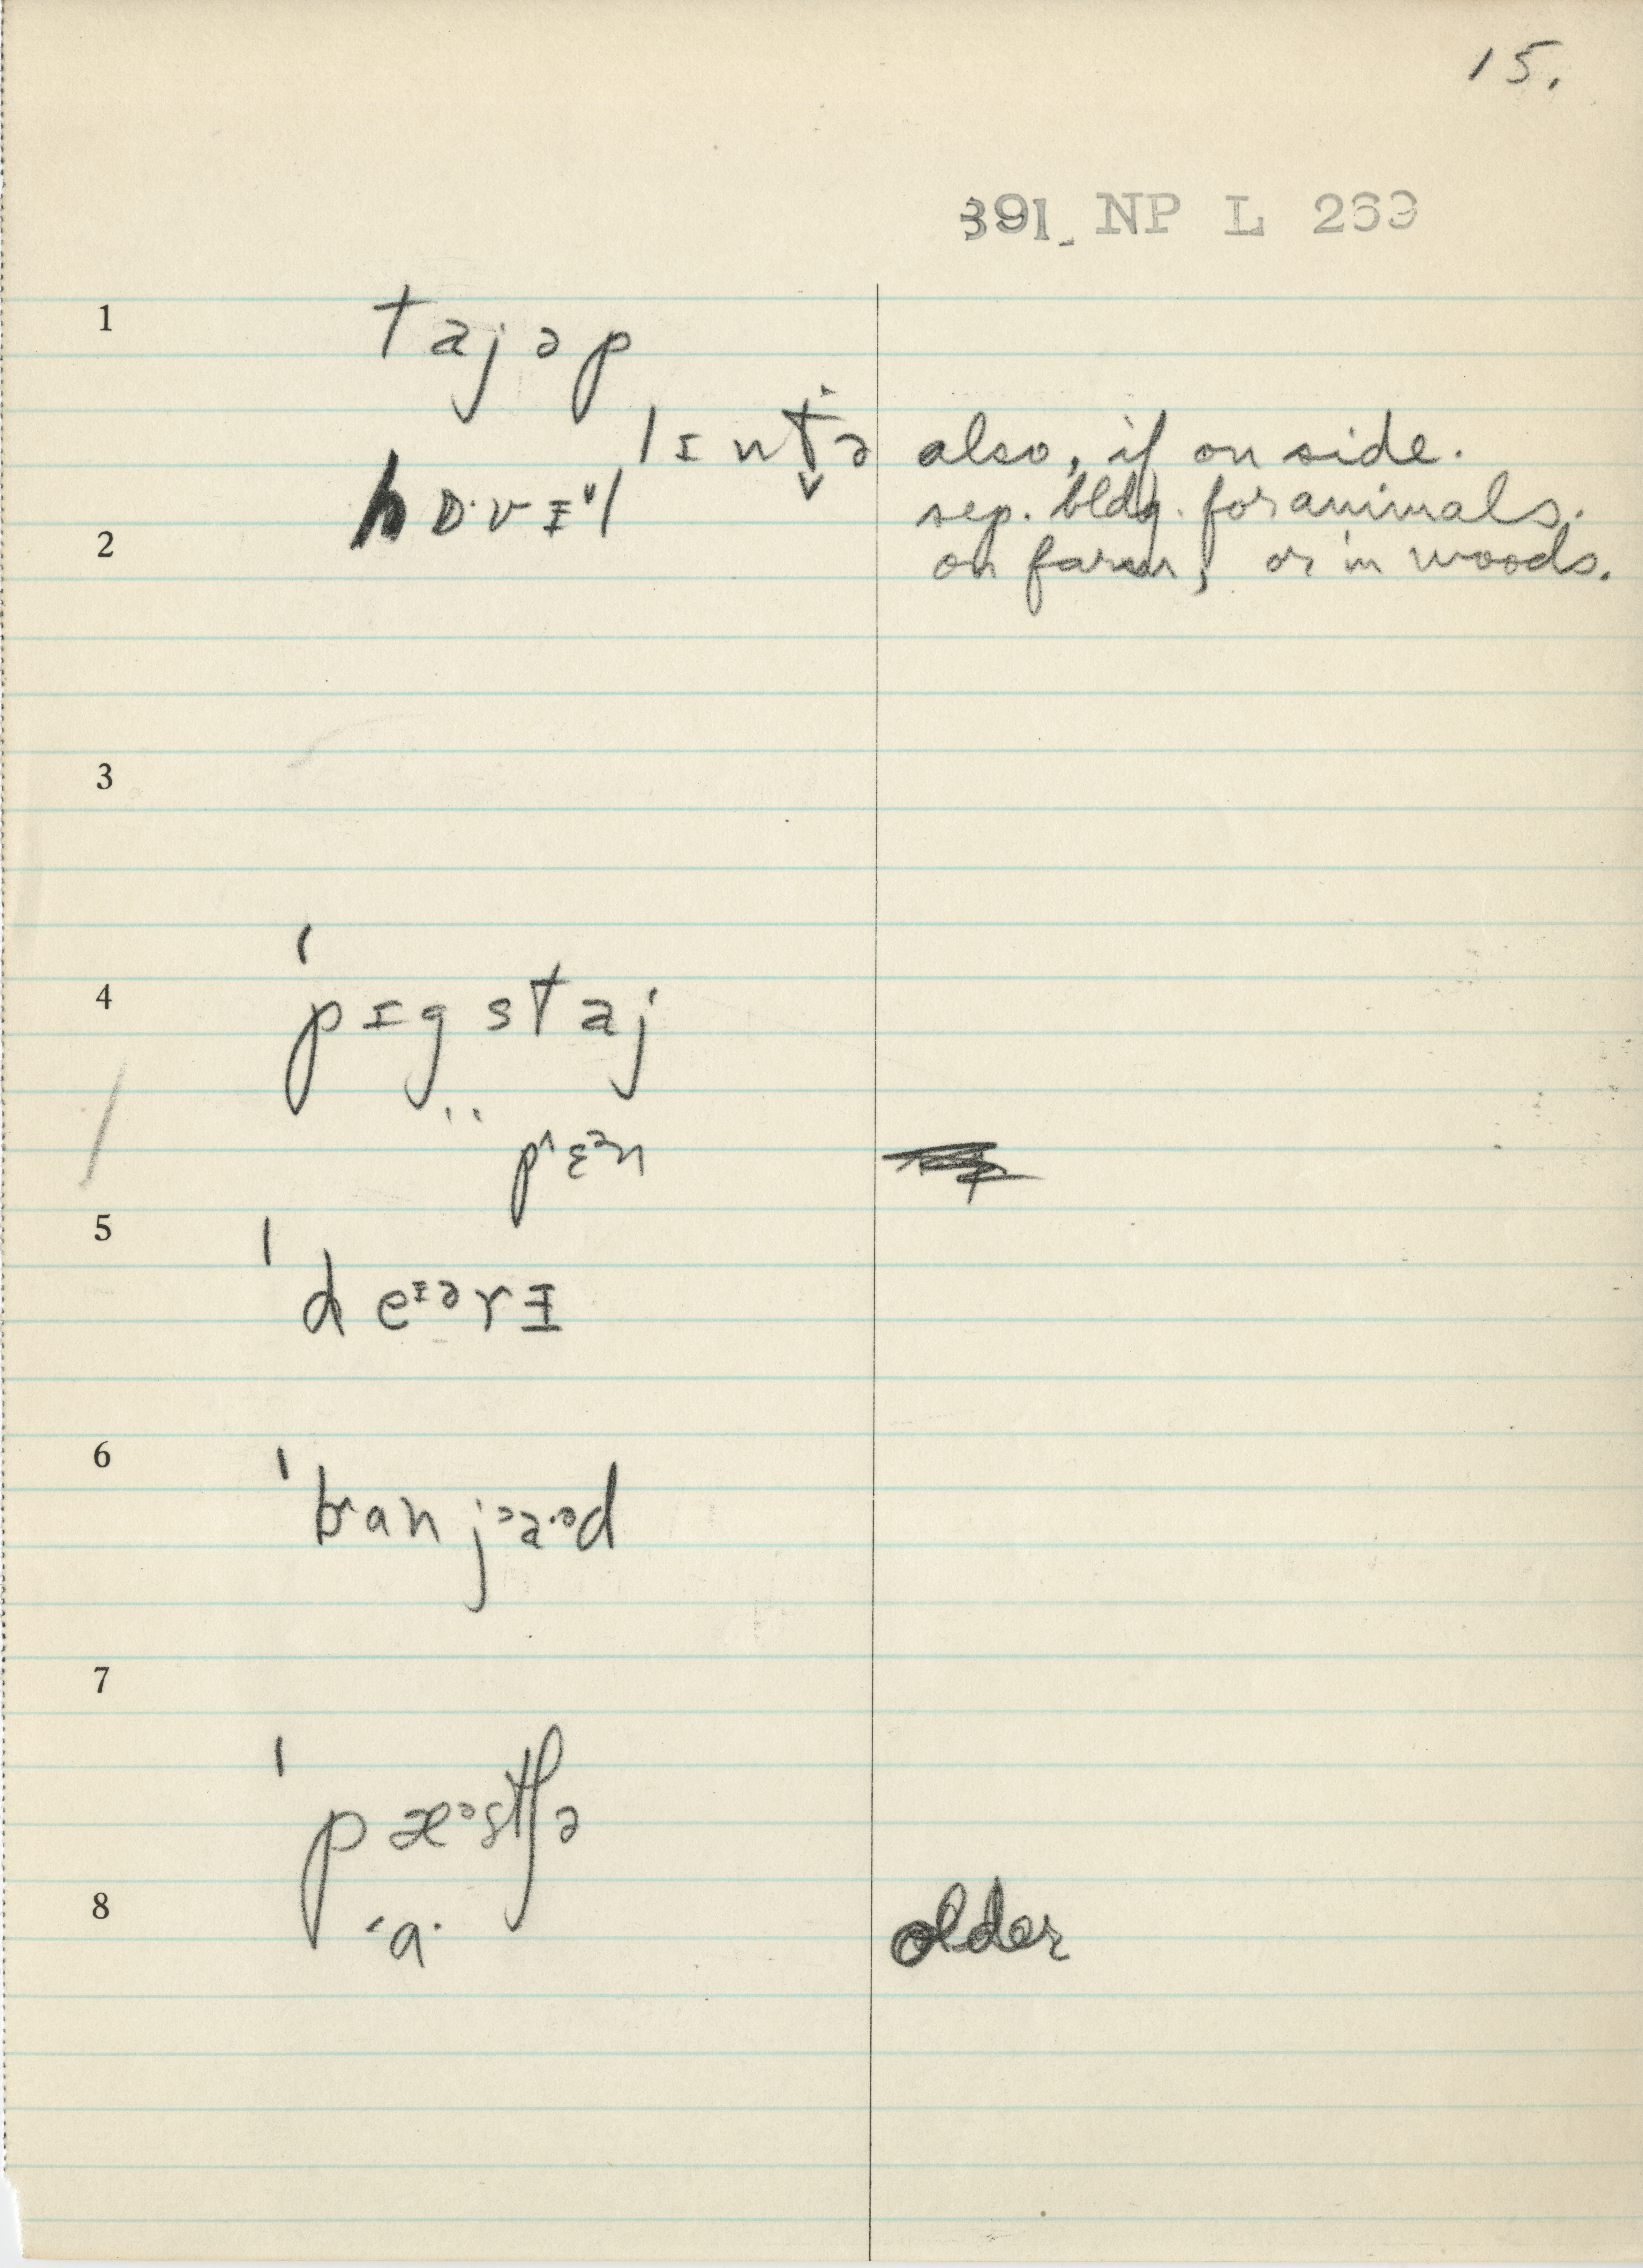 15.
391. NP L 269
1
tajəp
lɪnt̬ə also, if on side.
hɒ·vɪ̵l sep. bldg. for animals.
2 on farm, or in woods.
3
4 'pɪgstaj
" pʌɛᵊn
5
'deᵻᵊrᵻ
6
'bʌanjᵊa·ᵊd
7
'pæᵊstʃə
8 'a· older